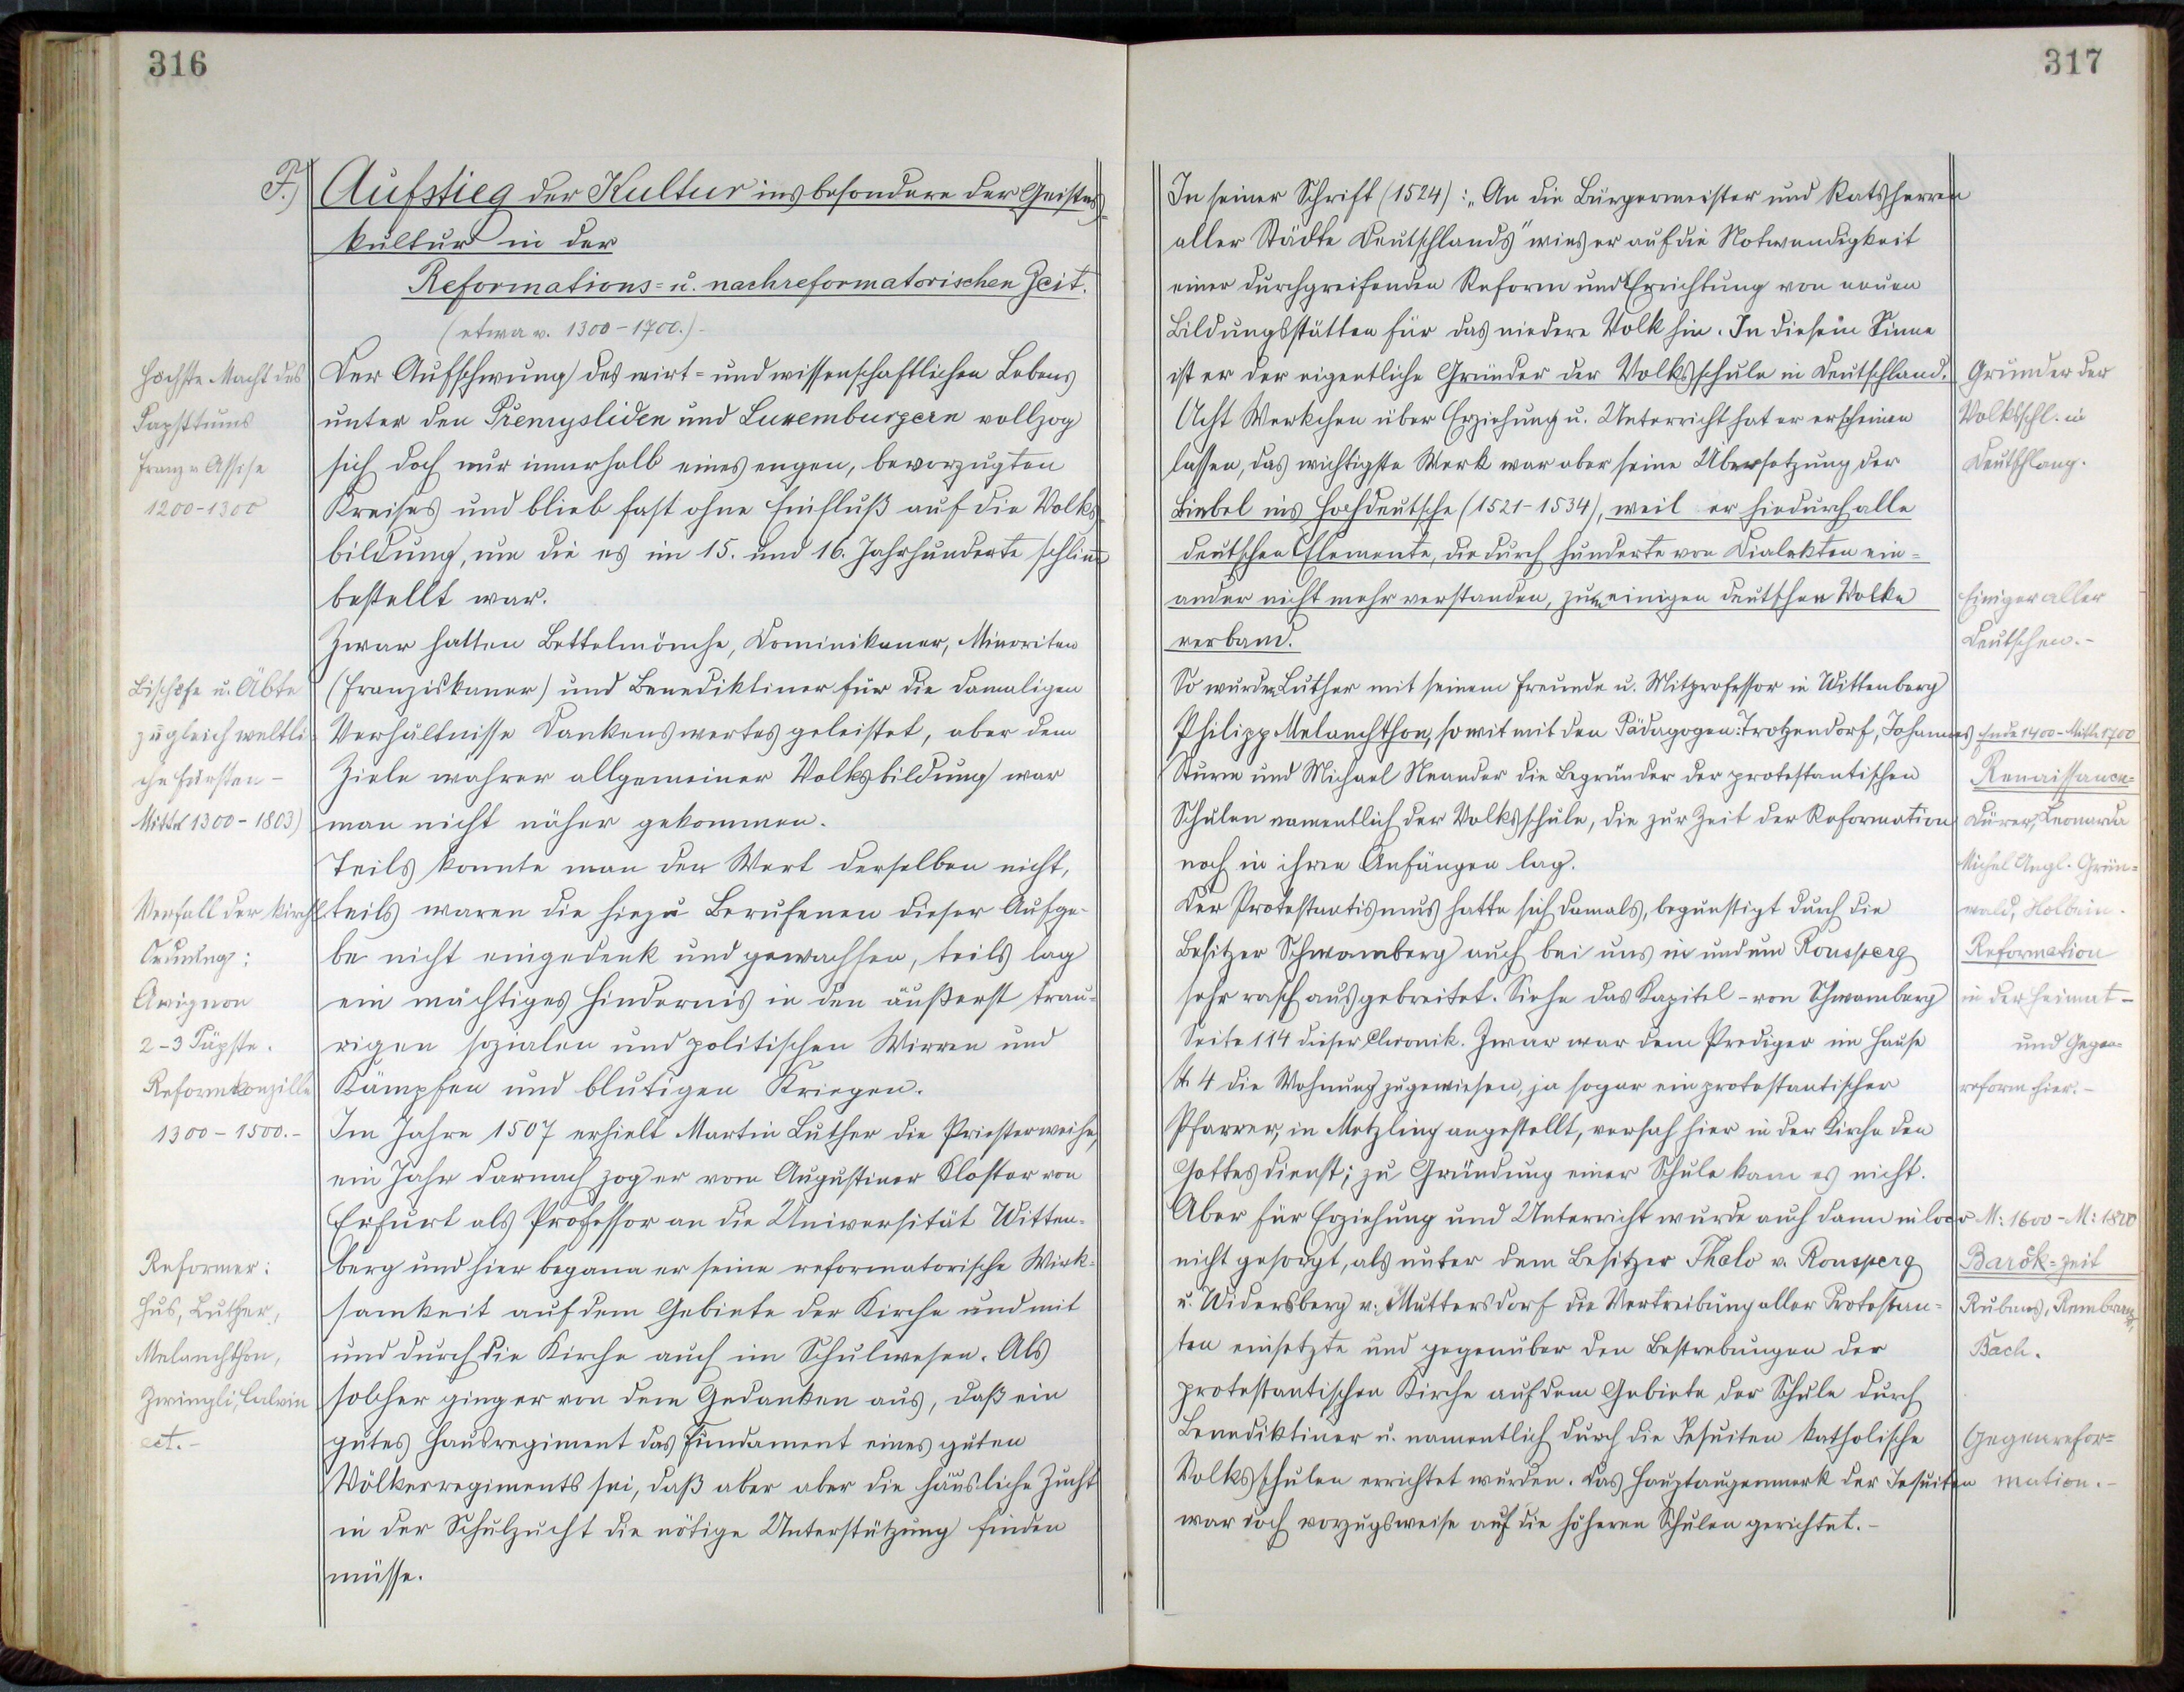 316
F.) Aufstieg der Kultur insbesondere der Geistes-
kultur in der
Reformations= u. nachreformatorischen Zeit.
(etwa v. 1300-1700.)-
Höchste Macht des
Papsttums
Franz v. Assise
1200-1300
Der Aufschwung des wirt= und wissenschaftlichen Lebens
unter den Přemysliden und Luxemburgern vollzog
sich doch nur innerhalb eines engen, bevorzugten
Kreises und blieb fast ohne Einfluß auf die Volks-
bildung, um die es im 15. und 16. Jahrhunderte schlimm
bestellt war.
Zwar hatten Bettelmönche, Dominikaner, Minoriten
Bischöfe u. Äbte
zugleich weltli-
che Fürsten-
Mittel 1300-1803)
(Franziskaner) und Benediktiner für die damaligen
Verhältnisse Dankenswertes geleistet, aber dem
Ziele wahrer allgemeiner Volksbildung war
man nicht näher gekommen.
Teils kannte man den Wert derselben nicht,
Verfall der kirchl.
Ordnung:
Avignon
2-3 Päpste.
Reformkonzille
1300-1500.-
teils waren die hiezu Berufenen dieser Aufga-
be nicht eingedenk und gewachsen, teils lag
ein mächtiges Hindernis in den äußerst trau-
rigen sozialen und politischen Wirren und
Kämpfen und blutigen Kriegen.
Im Jahre 1507 erhielt Martin Luther die Priesterweihe,
ein Jahr darnach zog er vom Augustiner Kloster von
Erfurt als Professor an die Universität Witten-
berg und hier begann er seine reformatorische Wirk-
samkeit auf dem Gebiete der Kirche und mit
und durch die Kirche auch im Schulwesen. Als
solcher ging er von dem Gedanken aus, daß ein
gutes Hausregiment das Fundament eines guten
Völkerregiments sei, daß aber aber die häusliche Zucht
in der Schulzucht die nötige Unterstützung finden
müsse.
Reformer:
Hus, Luther,
Melanchthon,
Zwingli, Calvin
ect.-
317
In seiner Schrift (1524): „An die Bürgermeister und Ratsherren
aller Städte Deutschlands" wies er auf die Notwendigkeit
einer durchgreifenden Reform und Errichtung von neuen
Bildungsstätten für das niedere Volk hin. In diesem Sinne
ist er der eigentliche Gründer der Volksschule in Deutschland.
Acht Werkchen über Erziehung u. Unterricht hat er erscheinen
lassen, das wichtigste Werk war aber seine Übersetzung der
Biebel ins Hochdeutsche (1521-1534), weil er hiedurch alle
deutschen Elemente, die durch hunderte von Dialekten ein-
ander nicht mehr verstanden, zum einigen deutschen Volke
verband.
Gründer der
Volksschl. in
Deutschlang.
Einiger aller
Deutschen.-
So wurden Luther mit seinem Freunde u. Mitprofessor in Wittenberg
Philipp Melanchthon, so wit mit den Pädagogen: Trotzendorf, Johannes
Sturm und Michael Neander die Begründer der protestantischen
Schulen namentlich der Volksschule, die zur Zeit der Reformation
noch in ihren Anfängen lag.
Ende 1400-Mitte 1700
Renaissance-
Dürer, Leonarda
Michel Angl. Grün-
wald, Holbein.
Der Protestantismus hatte sich damals, begünstigt durch die
Besitzer Schwamberg auch bei uns in und um Ronsperg
sehr rasch ausgebreitet. Siehe das Kapitel - von Schwamberg
Seite 114 dieser Chronik. Zwar war dem Prediger im Hause
№ 4 die Wohnung zugewiesen, ja sogar ein protestantischer
Pfarrer, in Metzling angestellt, versah hier in der Kirche den
Gottesdienst; zu Gründung einer Schule kam es nicht.
Reformation
in der Heimat-
und Gegen-
reform hier.-
Aber für Erziehung und Unterricht wurde auch dann in loco
nicht gesorgt, als unter dem Besitzer Thelo v. Ronsperg
u. Widersberg v. Muttersdorf die Vertreibung aller Protestan-
ten einsetzte und gegenüber den Bestrebungen der
protestantischen Kirche auf dem Gebiete der Schule durch
Benediktiner u. namentlich durch die Jesuiten katholische
Volksschulen errichtet wurden. Das Hauptaugenmerk der Jesuiten
war doch vorzugsweise auf die höheren Schulen gerichtet.-
M: 1600-M: 1820
Barok=zeit
Rubens, Rembrandt,
Bach.
Gegenrefor-
mation.-